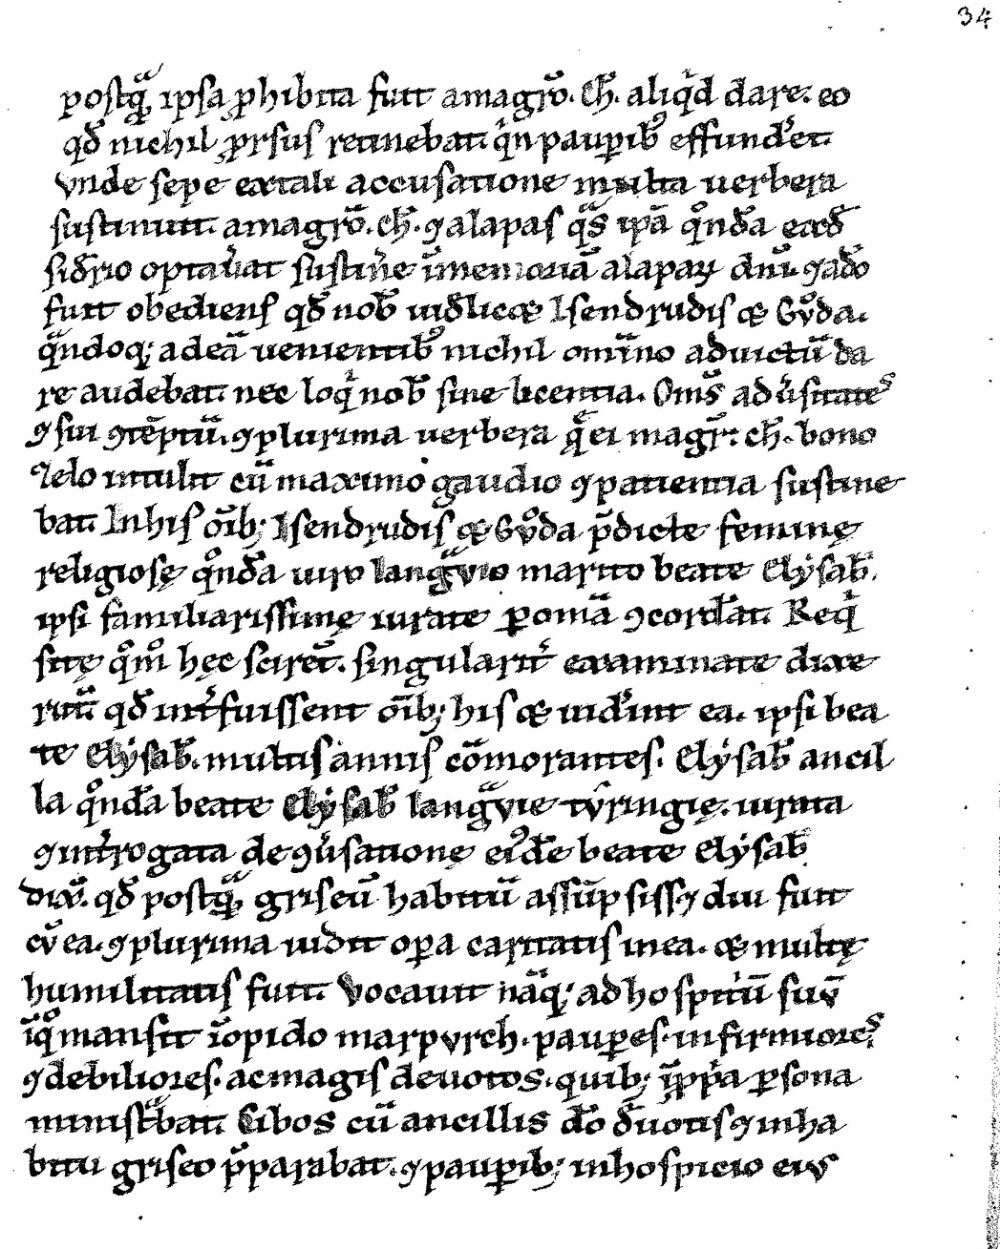 34
postq̃ꝫ ipsa ꝓhibita fuit amagr̃o. Ch̃. aliqͥd dare. eo
qd̃ nichil ꝓrsus retinebat. qͥn pauꝑibꝰ effundͤet.
Vnde sepe extali accusatione multa uerbera
sustinuit. amagr̃o. ch̃. ⁊ alapas qͣs ip̃a qͦndã
sidͤrio optauͥat sustinͤe ĩmemoriã alapaꝝ dñi. ⁊adͦo
fuit obediens qd̃ nob̃ uidͤlicet Isendrudis et Gͮda.
qͣndoqꝫ adeã uenientibꝰ nichil omĩno aduictũ da
re audebat. nec loqͥ nob̃ sine licentia. Oms̃ adũsitates
⁊ sui ⁊tẽptũ. ⁊ plurima uerbera qͤ ei magr̃. ch̃. bono
Zelo intulit cũ maximo gaudio ⁊ patientia sustine
bat. Inhis oĩbꝫ Isendrudis et Gͮda p̃dicte feminę
religiosę qͦndã uiro langͣuio marito beate Elysab̃.
ipsi familiarissimę iurate ꝑ omã ⁊cordãt. Reqͥ
sitę qͦm̃ hęc scirẽt. singularitͥ examinate dixe
rũt qd̃ intͥfuissent oĩbꝫ his et uidͤint ea. ipsi bea
te Elysab̃. multis annis cõmorantes. Elysab̃ ancil
la qͦndã beate Elysab̃ langͣuie tyringię. iurata
⁊ intͥrogata de ⁊ũsatione eiꝰdẽ beate elysab̃
dix̃. qd̃ postq̃ꝫ griseũ habitũ assũpsisset diu fuit
cũ ea. ⁊ plurima uidit oꝑa caritatis inea. et multę
humilitatis fuit. Vocauit nãqꝫ adhospitiũ suũ
ĩqͦ mansit ĩopido marpurch. pauꝑes. infirmiores
⁊ debiliores. acmagis deuotos. quibꝫ ꝑp̃a ꝑsona
ministͣbat. Cibos cũ ancillis dõ d̃uotis ⁊ inha
bitu griseo p̃parabat. ⁊ pauꝑibꝫ inhospicio eiꝰ